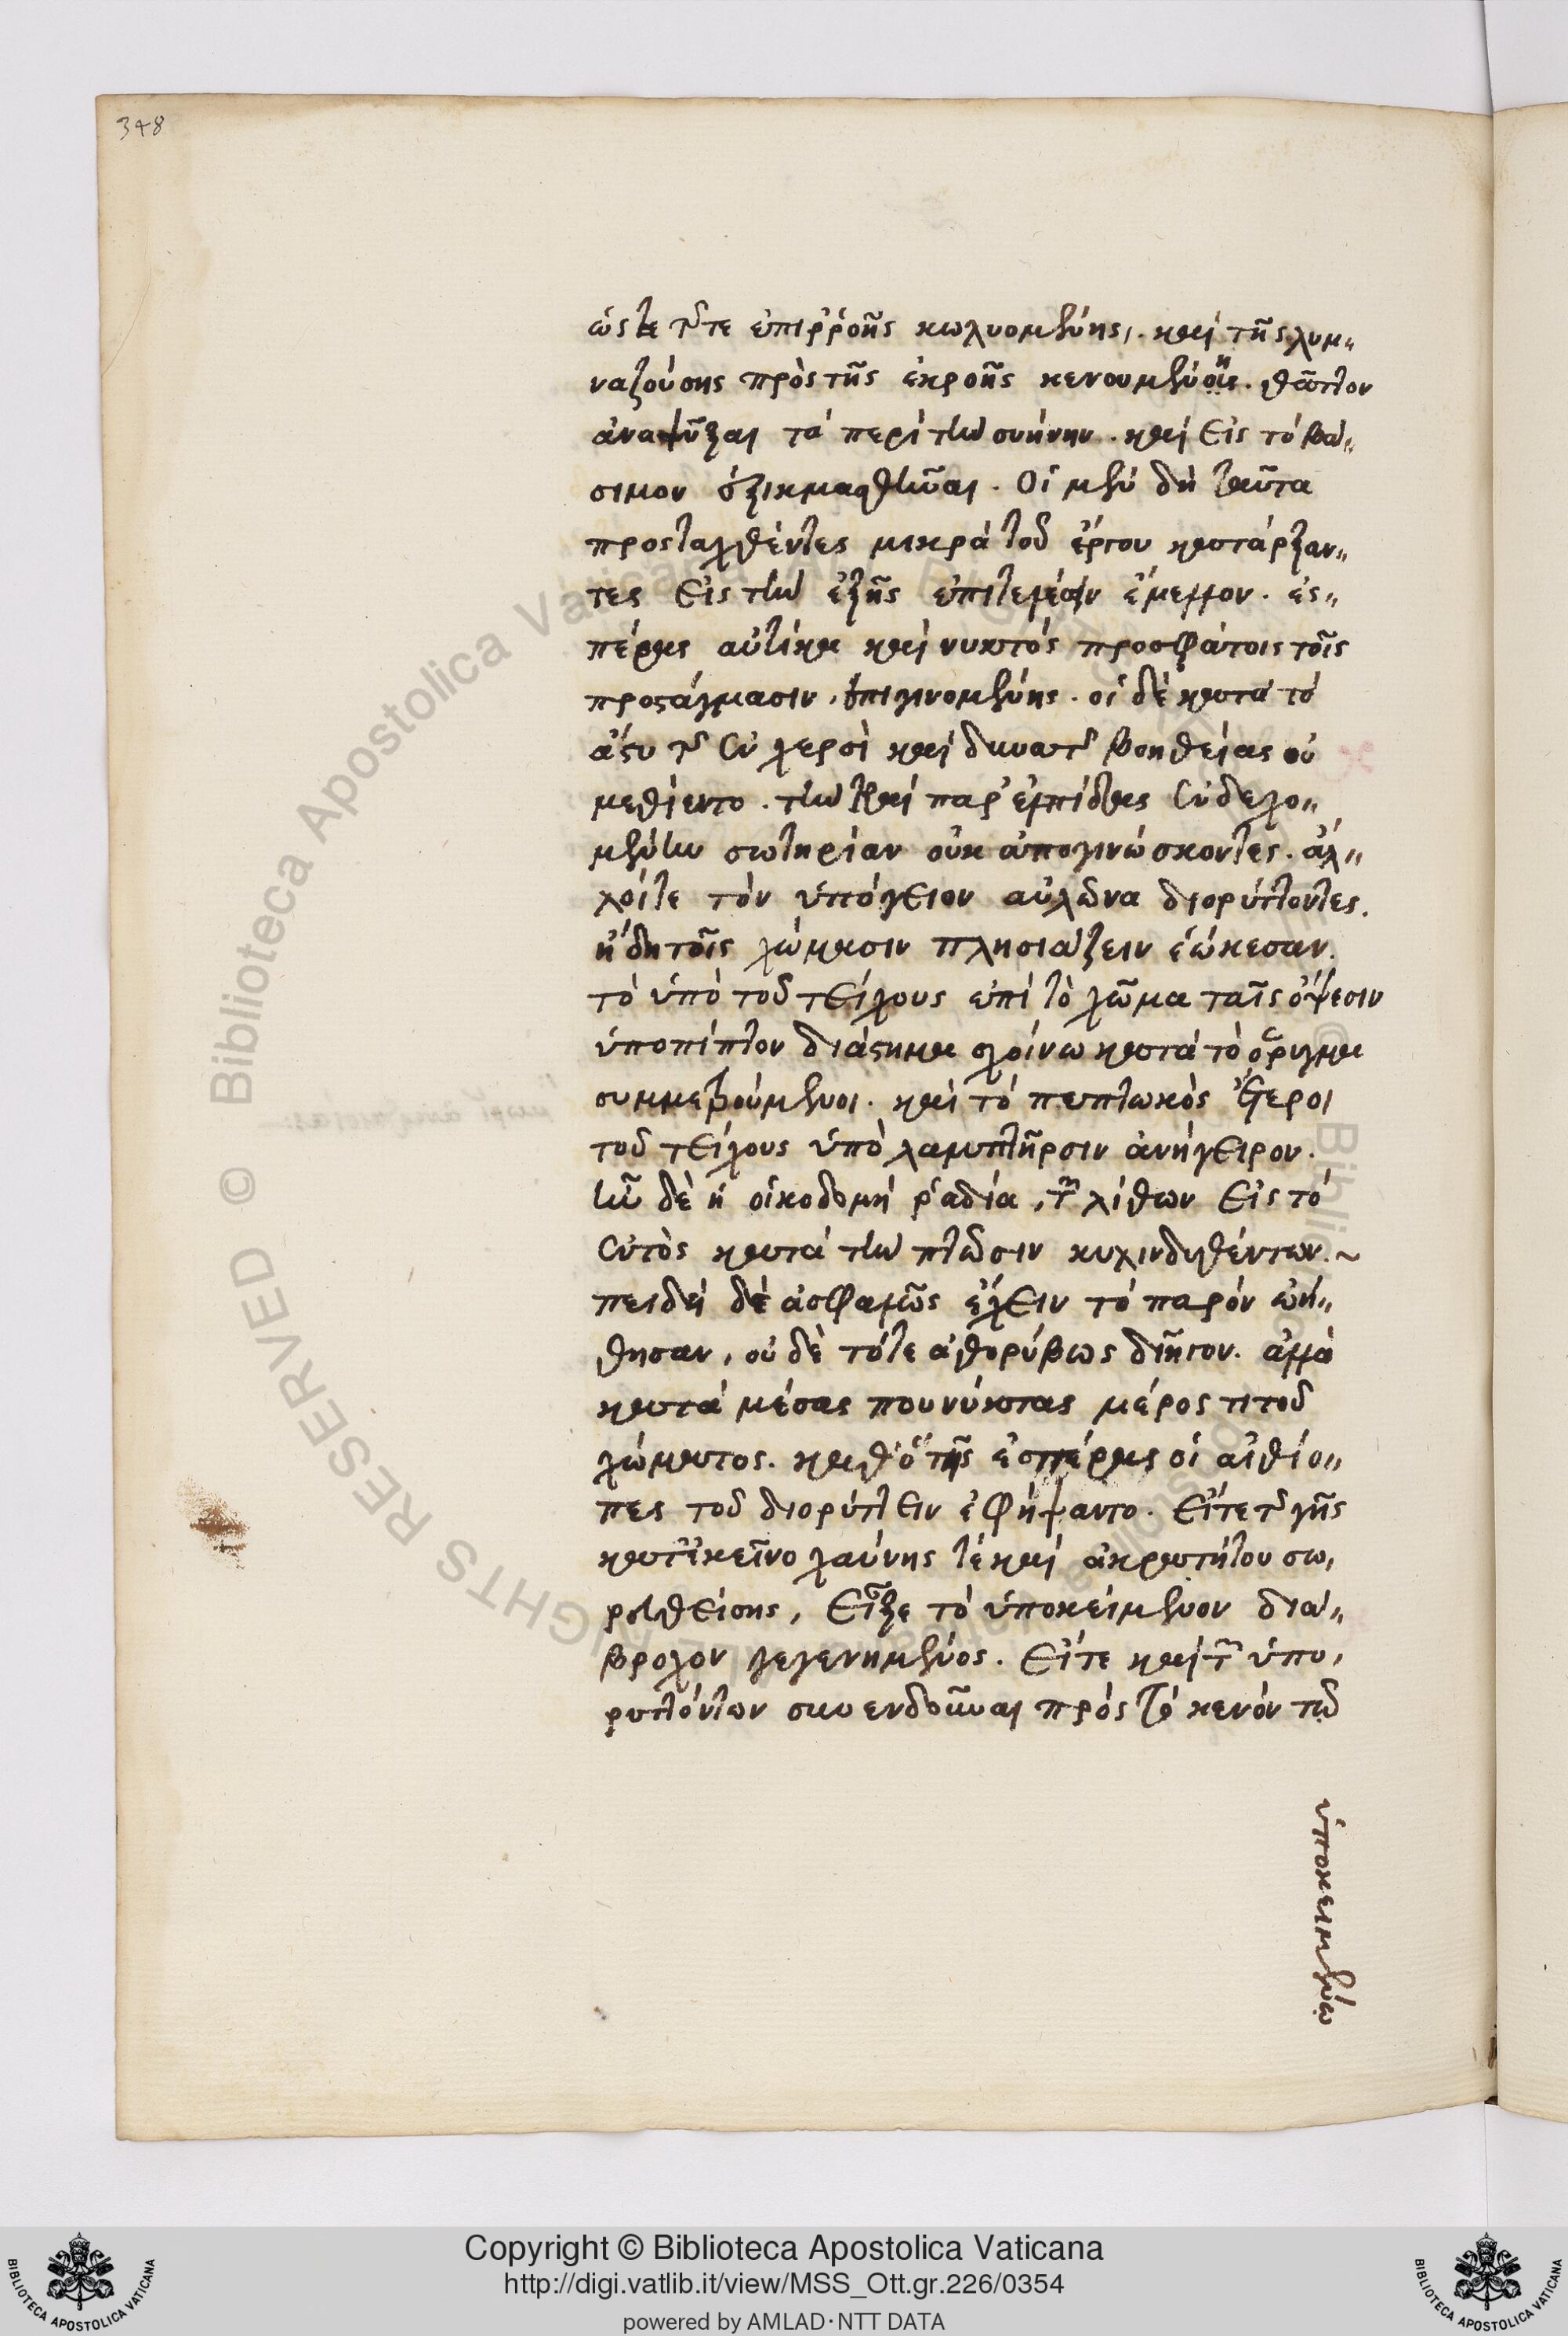 348
ὥστε τῆς τε ἐπιρῤοῆς κωλυομένης, καὶ τῆς λιμ-
ναζούσης πρὸς τῆς ἐκροῆς κενουμένης. θᾶττον
ἀναψῦξαι τὰ περὶ τὴν συήνην. καὶ εἰς τὸ βά-
σιμον ἐξικμασθῆναι. Οἱ μὲν δὴ ταῦτα
προσταχθέντες μικρὰ τοῦ ἔργου κατάρξαν-
τες εἰς τὴν ἑξῆς ἐπιτελεῖν ἔμελλον. ἑσ-
πέρας αὐτίκα καὶ νυκτὸς προσφάτοις τοῖς
προστάγμασιν, ἐπιγινομένης. οἱ δὲ κατὰ τὸ
ἄστυ τῆς ἐν χερσὶ καὶ δυνατῆς βοηθείας οὐ
μεθίεντο. τὴν καὶ παρ' ἐλπίδας ἐνδεχο-
μένην σωτηρίαν οὐκ ἀπογινώσκοντες. ἀλ-
λ' οἵ τε τὸν ὑπόγειον αὐλῶνα διορύττοντες.
ἤδη τοῖς χώμασιν πλησιάζειν ἐώκεσαν.
τὸ ὑπὸ τοῦ τείχους ἐπὶ τὸ χῶμα ταῖς ὄψεσιν
ὑποπίπτον διάστημα σχοίνω κατὰ τὸ ὄρυγμα
συμμετρούμενοι. καὶ τὸ πεπτωκὸς ἕτεροι
τοῦ τείχους ὑπὸ λαμπτῆρσιν ἀνήγειρον.
ἦν δὲ ἡ οἰκοδομὴ ῥαδία, τῶν λίθων εἰς τὸ
ἐντὸς κατὰ τὴν πτῶσιν κυλινδηθέντων. ~
πειδὴ δὲ ἀσφαλῶς ἔχειν τὸ παρὸν ᾠή-
θησαν, οὐδὲ τότε ἀθορύβως διῆγον. ἀλλὰ
κατὰ μέσας που νύκτας μέρος τι τοῦ
χώματος. καθ' ὃ τῆς ἑσπέρας οἱ αἰθίο-
πες τοῦ διορύττειν ἐφήψαντο. εἴτε τῆς γῆς
κατ' ἐκεῖνο χαύνης τὲ καὶ ἀκρατήτου σω-
ρευθείσης, εἶξε τὸ ὑποκείμενον διά-
βροχον γεγενημένος. εἴτε καὶ τῶν ὑπο-
ρυττόντων συνενδοῦναι πρὸς τὸ κενὸν τῶ
ὑποκειμένω
Copyright © Biblioteca Apostolica Vaticana
http://digi.vatlib.it/view/MSS_Ott.gr.226/0354
powered by AMLAD·NTT DATA